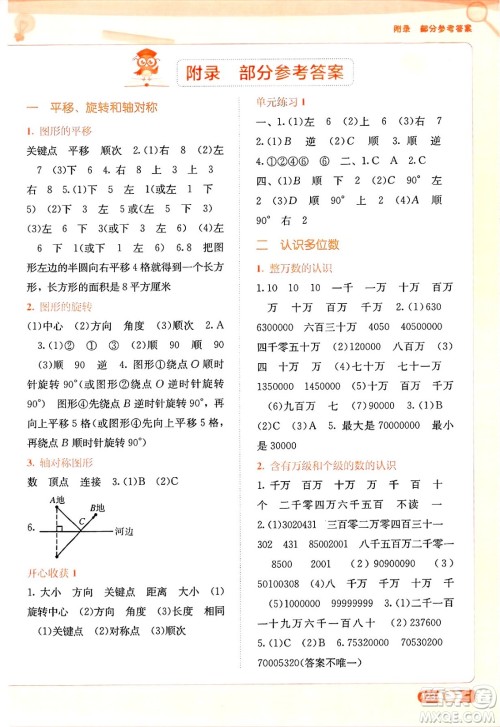 附录 部分参考答案
附录 部分参考答案
一 平移、旋转和轴对称
1. 图形的平移
关键点 平移 顺次 2.(1)左 8
(2)下 7 (3)右 6 4.(1)左 6
(2)右 7 (3)上 4 (4)下 3
5.(1)下 5 左 1(或左 1 下
5) (2)左 5 上 1(或上 1 左
5) (3)右 5 下 2(或下 2 右
5) (4)右 6 上 5 6.8 把图
形左边的半圆向右平移 4 格就得到一个长方
形，长方形的面积是 8 平方厘米
2. 图形的旋转
(1)中心 方向 角度 (3)顺次 2.A
3.(1)② ① ③ (2)顺 90 逆
90 (3)顺 90 5.图形①绕点 O 顺时
针旋转 90°(或图形②绕点 O 逆时针旋转
90°) 图形④先绕点 B 逆时针旋转 90°，
再向上平移 5 格(或图形④先向上平移 5 格，
再绕点 B 逆时针旋转 90°)
3. 轴对称图形
数 顶点 连接 3.(1)C (2)B
6.
A地
B地
C
河边
开心收获 1
1. 大小 方向 关键点 大小 (1)
旋转中心 (2)旋转方向 角度 相同
(1)关键点 (2)对称点 4.(1)B (2)C
单元练习 1
一、1.(1)左 6 (2)上 6 (3)右 7
2.(1)B 逆 (2)C 逆 (3)A 顺
4.①②④⑥ 二、1.C 2.C 3.A
四、(1)B 顺 90° (2)D 顺
90° 上 2 (3)D 顺 90° 上
2 (4)A 顺 90° 右 2
二 认识多位数
1. 整万数的认识
1.10 10 10 一千 一万 十万
百万 千万 十万 2.(1)630
6300000 六百三十万 (2)4050
四千零五十万 (3)80000000 八
千万 4.(1)七十二万 七十万零
两千 七千二百万 (2)1040000
1350000 1450000 5.(2)2
(3)3 (4)七十七万 (5)四十三
万 (6)九百万 七 (7)一百二
十万 一百八十万 5. 最大是 750000
最小是 200003
2. 含有万级和个级的数的认识
1. 百万 千 二千零四万六千五百
二千零四 六千五百 不读 一
2.(1)3020431 三百零二万零四百三
十一 302 431 (2)85008050
八千五百万八千零五十
8500 8050 4.(1)8050080
5008500 (2)90090000 (3)
50100308 5.(1)A (2)二千一
百一十万二千一百一十二 (3)
10000000 99999999 (4)八千
5.(1)C (2)B 6.75320000
70005320(答案不唯一)